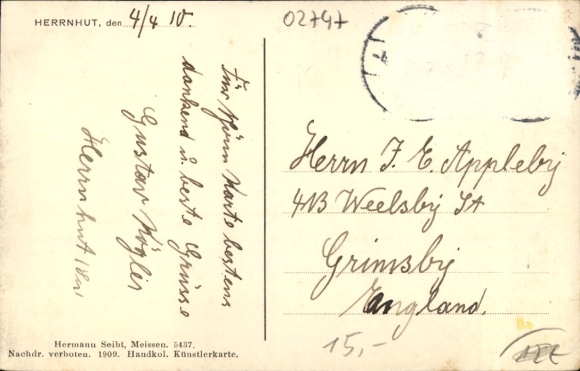 HERRNHUT, den 4/4 10.
02747
Für schöne Karte bestens
dankend u. beste Grüsse
Gustav Kögler
Herrnhut i Sa
Herrn F. E. Appleby
41B Weelsby St
Grimsby
England.
15,-
Hermann Seibt, Meissen. 5437.
Nachdr. verboten. 1909. Handkol. Künstlerkarte.